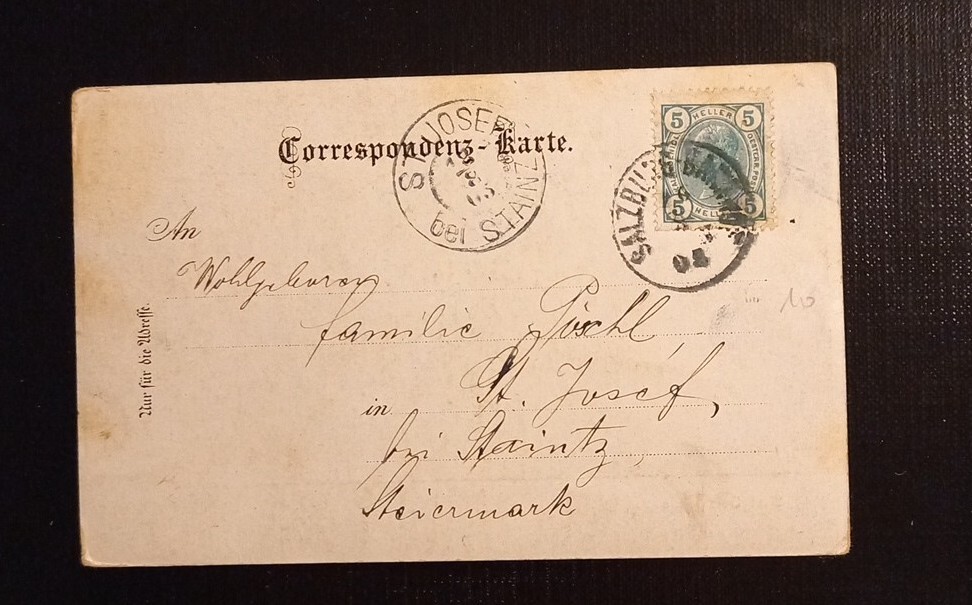 Correspondenz-Karte.
ST. JOSEF
bei STAINZ
5 HELLER 5
5 HELLER 5
SALZBURG
04
An
Wohlgeboren
familie Pöschl
in St. Josef,
bei Staintz,
Steiermark
Nur für die Adresse.
10